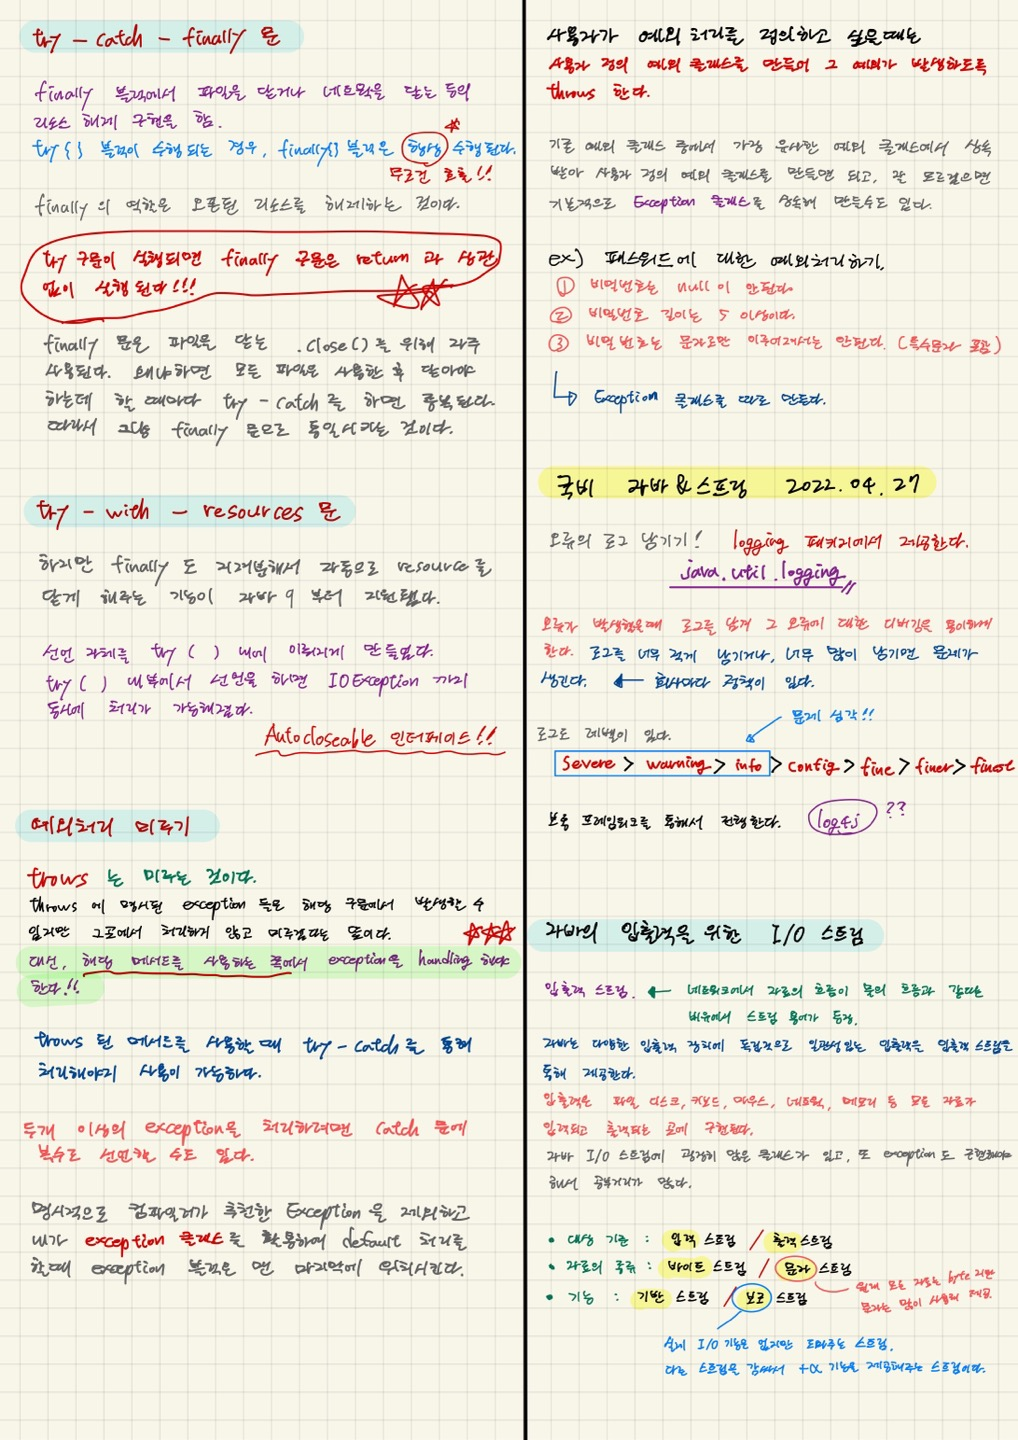 try - catch - finally 문
finally 블럭에서 파일을 닫거나 네트웍을 닫는 등의
리소스 해제 구현을 함.
try { } 블럭이 수행되는 경우, finally{} 블럭은 항상 수행된다.
무조건 호출!!
finally 의 역할은 오픈된 리소스를 해제하는 것이다.
try 구문이 실행되면 finally 구문은 return 과 상관
없이 실행된다!!!
finally 문은 파일을 닫는 .close() 를 위해 자주
사용된다. 왜냐하면 모든 파일은 사용한 후 닫아야
하는데 할 때마다 try - catch 를 하면 중복된다.
따라서 그냥 finally 문으로 통일시키는 것이다.
try - with - resources 문
하지만 finally 도 지저분해서 자동으로 resource 를
닫게 해주는 기능이 자바 9 부터 지원됐다.
선언 자체를 try ( ) 내에 이뤄지게 만들었다.
try ( ) 내부에서 선언을 하면 IOException 까지
동시에 처리가 가능해졌다.
Autocloseable 인터페이스!!
예외처리 미루기
trows 는 미루는 것이다.
throws 에 명시된 exception 들은 해당 구문에서 발생할 수
있지만 그곳에서 처리하지 않고 미루겠다는 뜻이다.
대신, 해당 메서드를 사용하는 쪽에서 exception을 handling 해야
한다.!!
trows 된 메서드를 사용할 때 try-catch 를 통해
처리해야지 사용이 가능하다.
두개 이상의 exception을 처리하려면 catch 문에
복수로 선언할 수도 있다.
명시적으로 컴파일러가 추천한 Exception 을 제외하고
내가 exception 클래스를 활용하여 default 처리를
할 때 exception 블럭은 맨 마지막에 위치시킨다.
사용자가 예외 처리를 정의하고 싶을 때는
사용자 정의 예외 클래스를 만들어 그 예외가 발생하도록
throws 한다.
기존 예외 클래스 중에서 가장 유사한 예외 클래스에서 상속
받아 사용자 정의 예외 클래스를 만들면 되고, 잘 모르겠으면
기본적으로 Exception 클래스를 상속해 만들수도 있다.
ex) 패스워드에 대한 예외처리하기.
① 비밀번호는 null 이 안된다.
② 비밀번호 길이는 5 이상이다.
③ 비밀번호는 문자로만 이루어져서는 안된다. (특수문자 포함)
Exception 클래스를 따로 만든다.
국비 자바&스프링 2022.04.27
오류의 로그 남기기! logging 패키지에서 제공한다.
java.util.logging
오류가 발생했을때 로그를 남겨 그 오류에 대한 디버깅을 용이하게
한다. 로그를 너무 적게 남기거나, 너무 많이 남기면 문제가
생긴다. ← 회사마다 정책이 있다.
문제 심각!!
로그도 레벨이 있다.
Severe > warning > info > config > fine > finer > finest
보통 프레임워크를 통해서 진행한다. log4j ??
자바의 입출력을 위한 I/O 스트림
입출력 스트림. ← 네트워크에서 자료의 흐름이 물의 흐름과 같다는
비유에서 스트림 용어가 등장.
자바는 다양한 입출력 장치에 독립적으로 일관성있는 입출력을 입출력 스트림을
통해 제공한다.
입출력은 파일 디스크, 키보드, 마우스, 네트웍, 메모리 등 모든 자료가
입력되고 출력되는 곳에 구현된다.
자바 I/O 스트림에 굉장히 많은 클래스가 있고, 또 exception 도 구현해야
해서 공부거리가 많다.
• 대상 기준 : 입력 스트림 / 출력 스트림
• 자료의 종류 : 바이트 스트림 / 문자 스트림
원래 모든 자료는 byte 지만
문자는 많이 사용해 제공.
• 기능 : 기반 스트림 / 보조 스트림
실제 I/O 기능은 없지만 도와주는 스트림.
다른 스트림을 감싸서 +α 기능을 제공해주는 스트림이다.